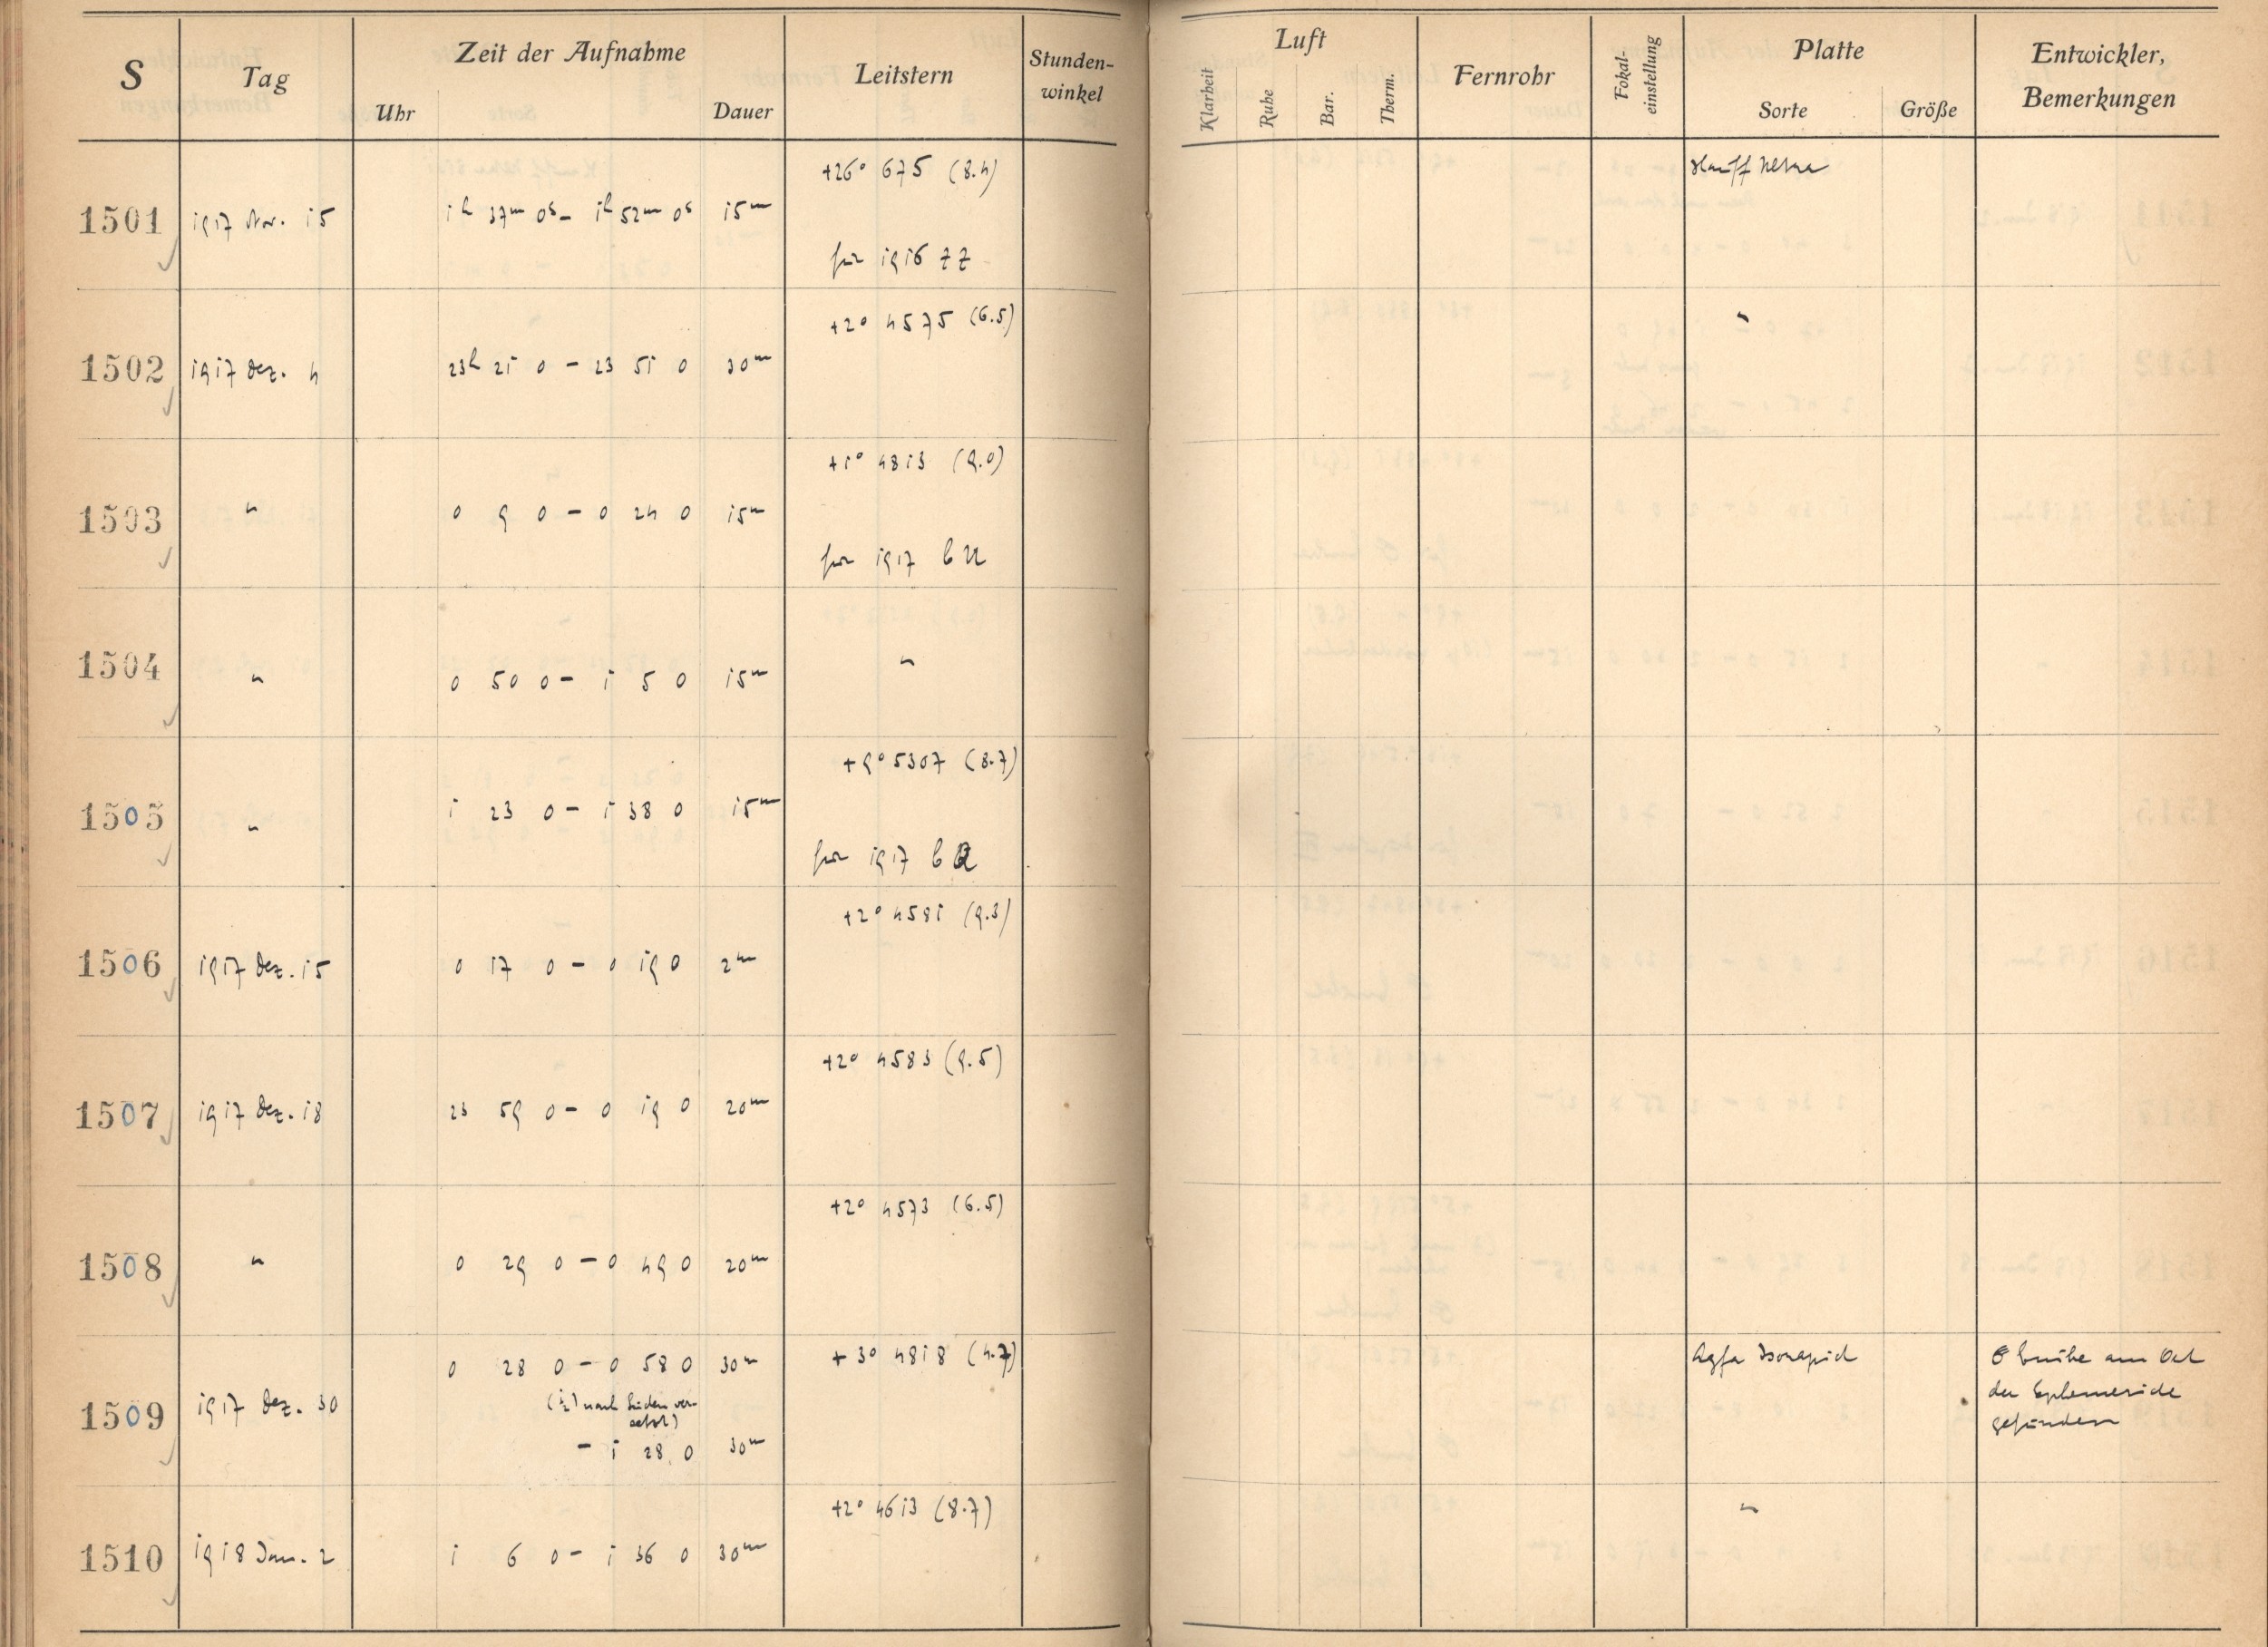 S Tag Zeit der Aufnahme Leitstern Stunden-winkel Luft Fernrohr Fokal-einstellung Platte Entwickler, Bemerkungen
Uhr Dauer Klarheit Ruhe Bar. Therm. Sorte Größe
+26° 675 (8.4) Hauff Ultra
1501 1917 Nov. 15 1h 37m 0s – 1h 52m 0s 15m
für 1916 ZZ
+2° 4575 (6.5) "
1502 1917 Dez. 4 23h 21 0 – 23 51 0 30m
+1° 4813 (9.0)
1503 " 0 9 0 – 0 24 0 15m
für 1917 b U
1504 " 0 50 0 – 1 5 0 15m "
+9° 5307 (8.7)
1505 " 1 23 0 – 1 38 0 15m
für 1917 b
+2° 4581 (9.3)
1506 1917 Dez. 15 0 17 0 – 0 19 0 2m
+2° 4583 (9.5)
1507 1917 Dez. 18 23 59 0 – 0 19 0 20m
+2° 4573 (6.5)
1508 " 0 29 0 – 0 49 0 20m
0 28 0 – 0 58 0 30m +3° 4818 (4.7) Agfa Isorapid
1509 1917 Dez. 30 nach Süden ver-
setzt)
– 1 28 0 30m
am Ort
der Ephemeride
gefunden
+2° 4613 (8.7) "
1510 1918 Jan. 2 1 6 0 – 1 36 0 30m